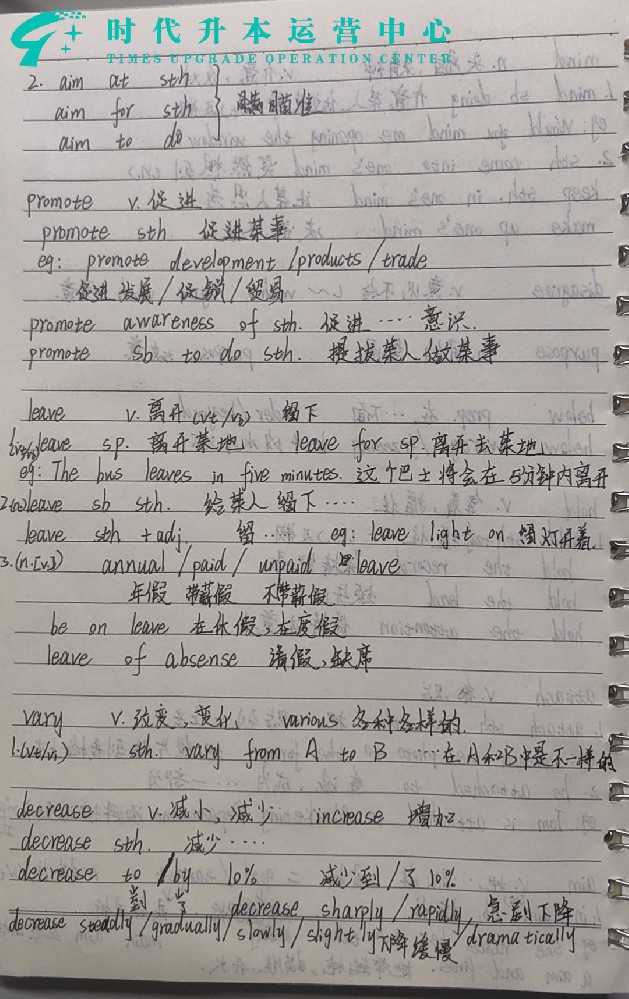 时代升本运营中心
TIMES UPGRADE OPERATION CENTER
2. aim at sth
aim for sth 瞄准
aim to do
promote v. 促进
promote sth 促进某事
eg: promote development / products / trade
促进发展 / 促销 / 贸易
promote awareness of sth. 促进 ···· 意识.
promote sb to do sth. 提拔某人做某事
leave v. 离开 (vt/vi) 留下
1.(vt/vi) leave sp. 离开某地 leave for sp. 离开去某地
eg: The bus leaves in five minutes. 这个巴士将会在5分钟内离开
2.(vt) leave sb sth. 给某人留下 ·····
leave sth + adj. 留 ··· eg: leave light on 留灯开着
3.(n.[u]) annual / paid / unpaid leave
年假 带薪假 不带薪假
be on leave 在休假, 在度假
leave of absense 请假, 缺席
vary v. 改变, 变化 various 各种各样的.
1.(vt/vi) sth. vary from A to B ···在A和B中是不一样的
decrease v. 减小, 减少 increase 增加
decrease sth. 减少 ····
decrease to / by 10% 减少到 / 了 10%
到 了 decrease sharply / rapidly 急剧下降
decrease steadly / gradually / slowly / slightly 下降缓慢 / dramatically